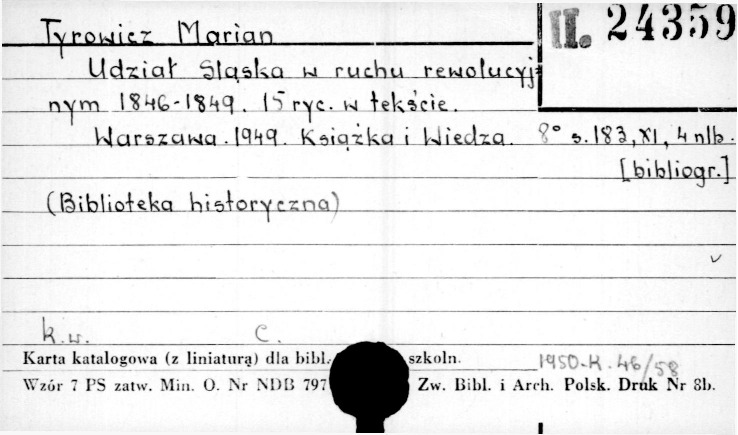 II. 24359
Tyrowicz Marian
Udział Śląska w ruchu rewolucyj-
nym 1846-1849. 15 ryc. w tekście.
Warszawa. 1949. Książka i Wiedza. 8° s. 183, XI, 4 nlb.
[bibliogr.]
(Biblioteka historyczna)
k.w. C.
Karta katalogowa (z liniaturą) dla bibl. szkoln. 1950-K. 46/58
Wzór 7 PS zatw. Min. O. Nr NDB 797 Zw. Bibl. i Arch. Polsk. Druk Nr 8b.